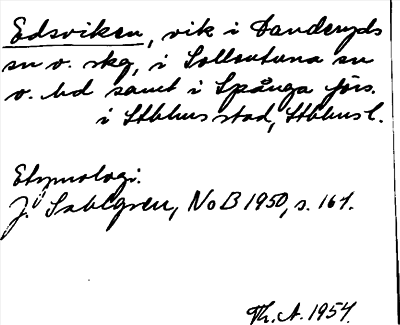 Edsviken, vik i Danderyds
sn o. skg, i Sollentuna sn
o. hd samt i Spånga förs.
i Sthlms stad, Sthlms l.
Etymologi:
J. Sahlgren, NoB 1950, s. 161.
Th. A. 1954.